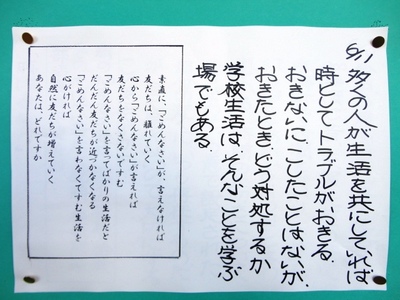 6/11 多くの人が生活を共にしていれば
時としてトラブルがおきる。
おきないに、こしたことはないが、
おきたとき、どう対処するか
学校生活は、そんなことを学ぶ
場でもある。
素直に、「ごめんなさい」が、言えなければ
友だちは、離れていく
心から「ごめんなさい」が言えれば
友だちをなくさないですむ
「ごめんなさい」を言ってばかりの生活だと
だんだん友だちが近づかなくなる
「ごめんなさい」を言わなくてすむ生活を
心がければ
自然に友だちが増えていく
あなたは、どれですか